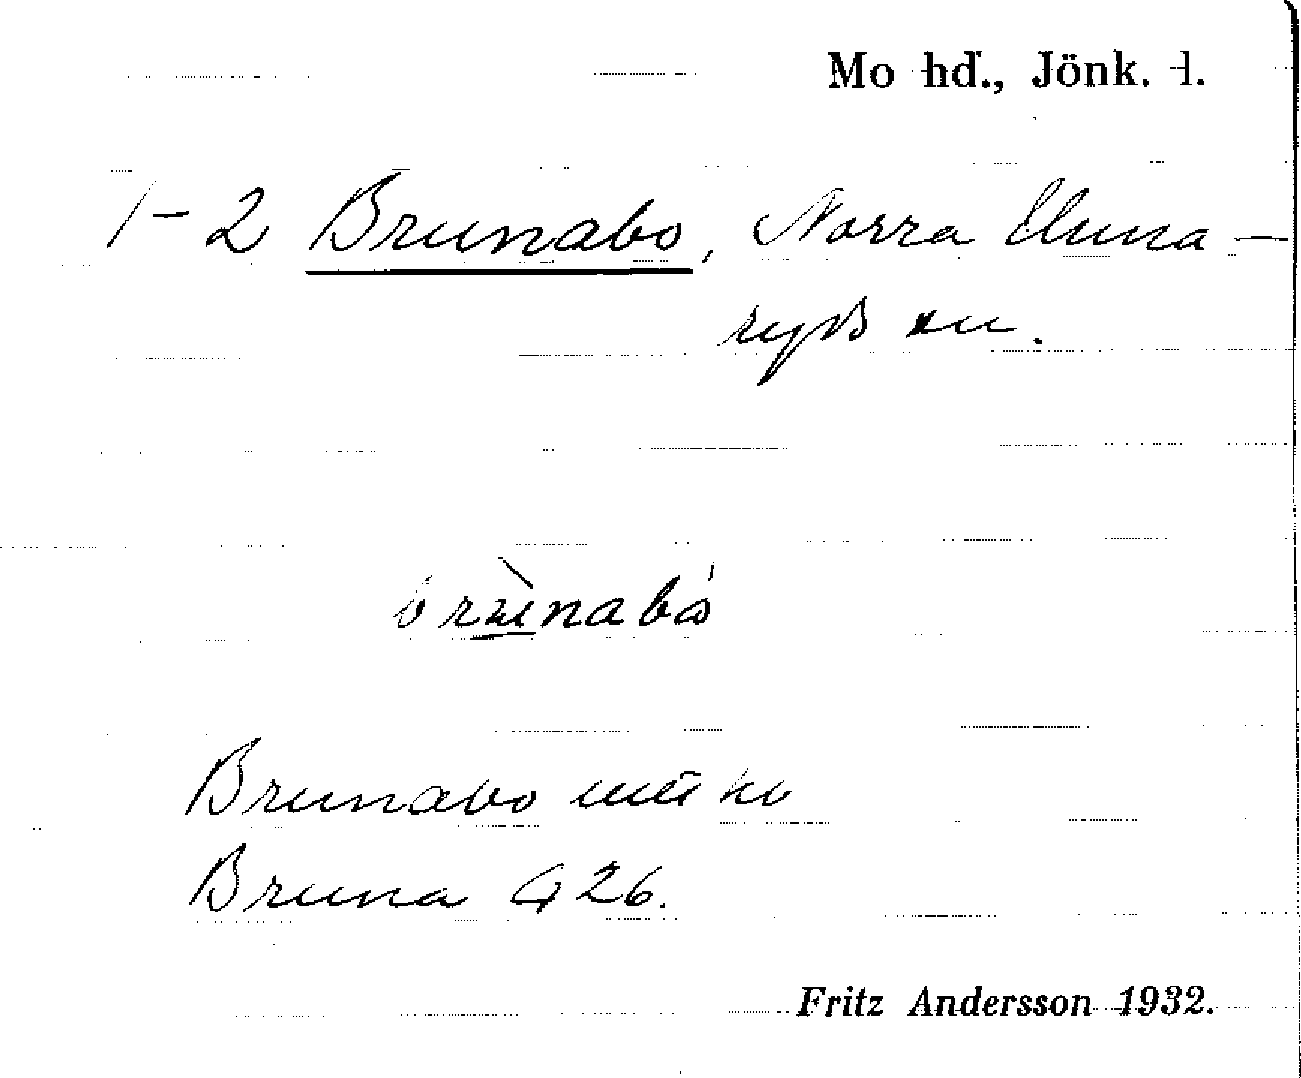 Mo hd., Jönk. l.
1-2 Brunabo, Norra Unna-
ryds sn.
brùnabó
Brunabo
Bruna G 26.
Fritz Andersson 1932.